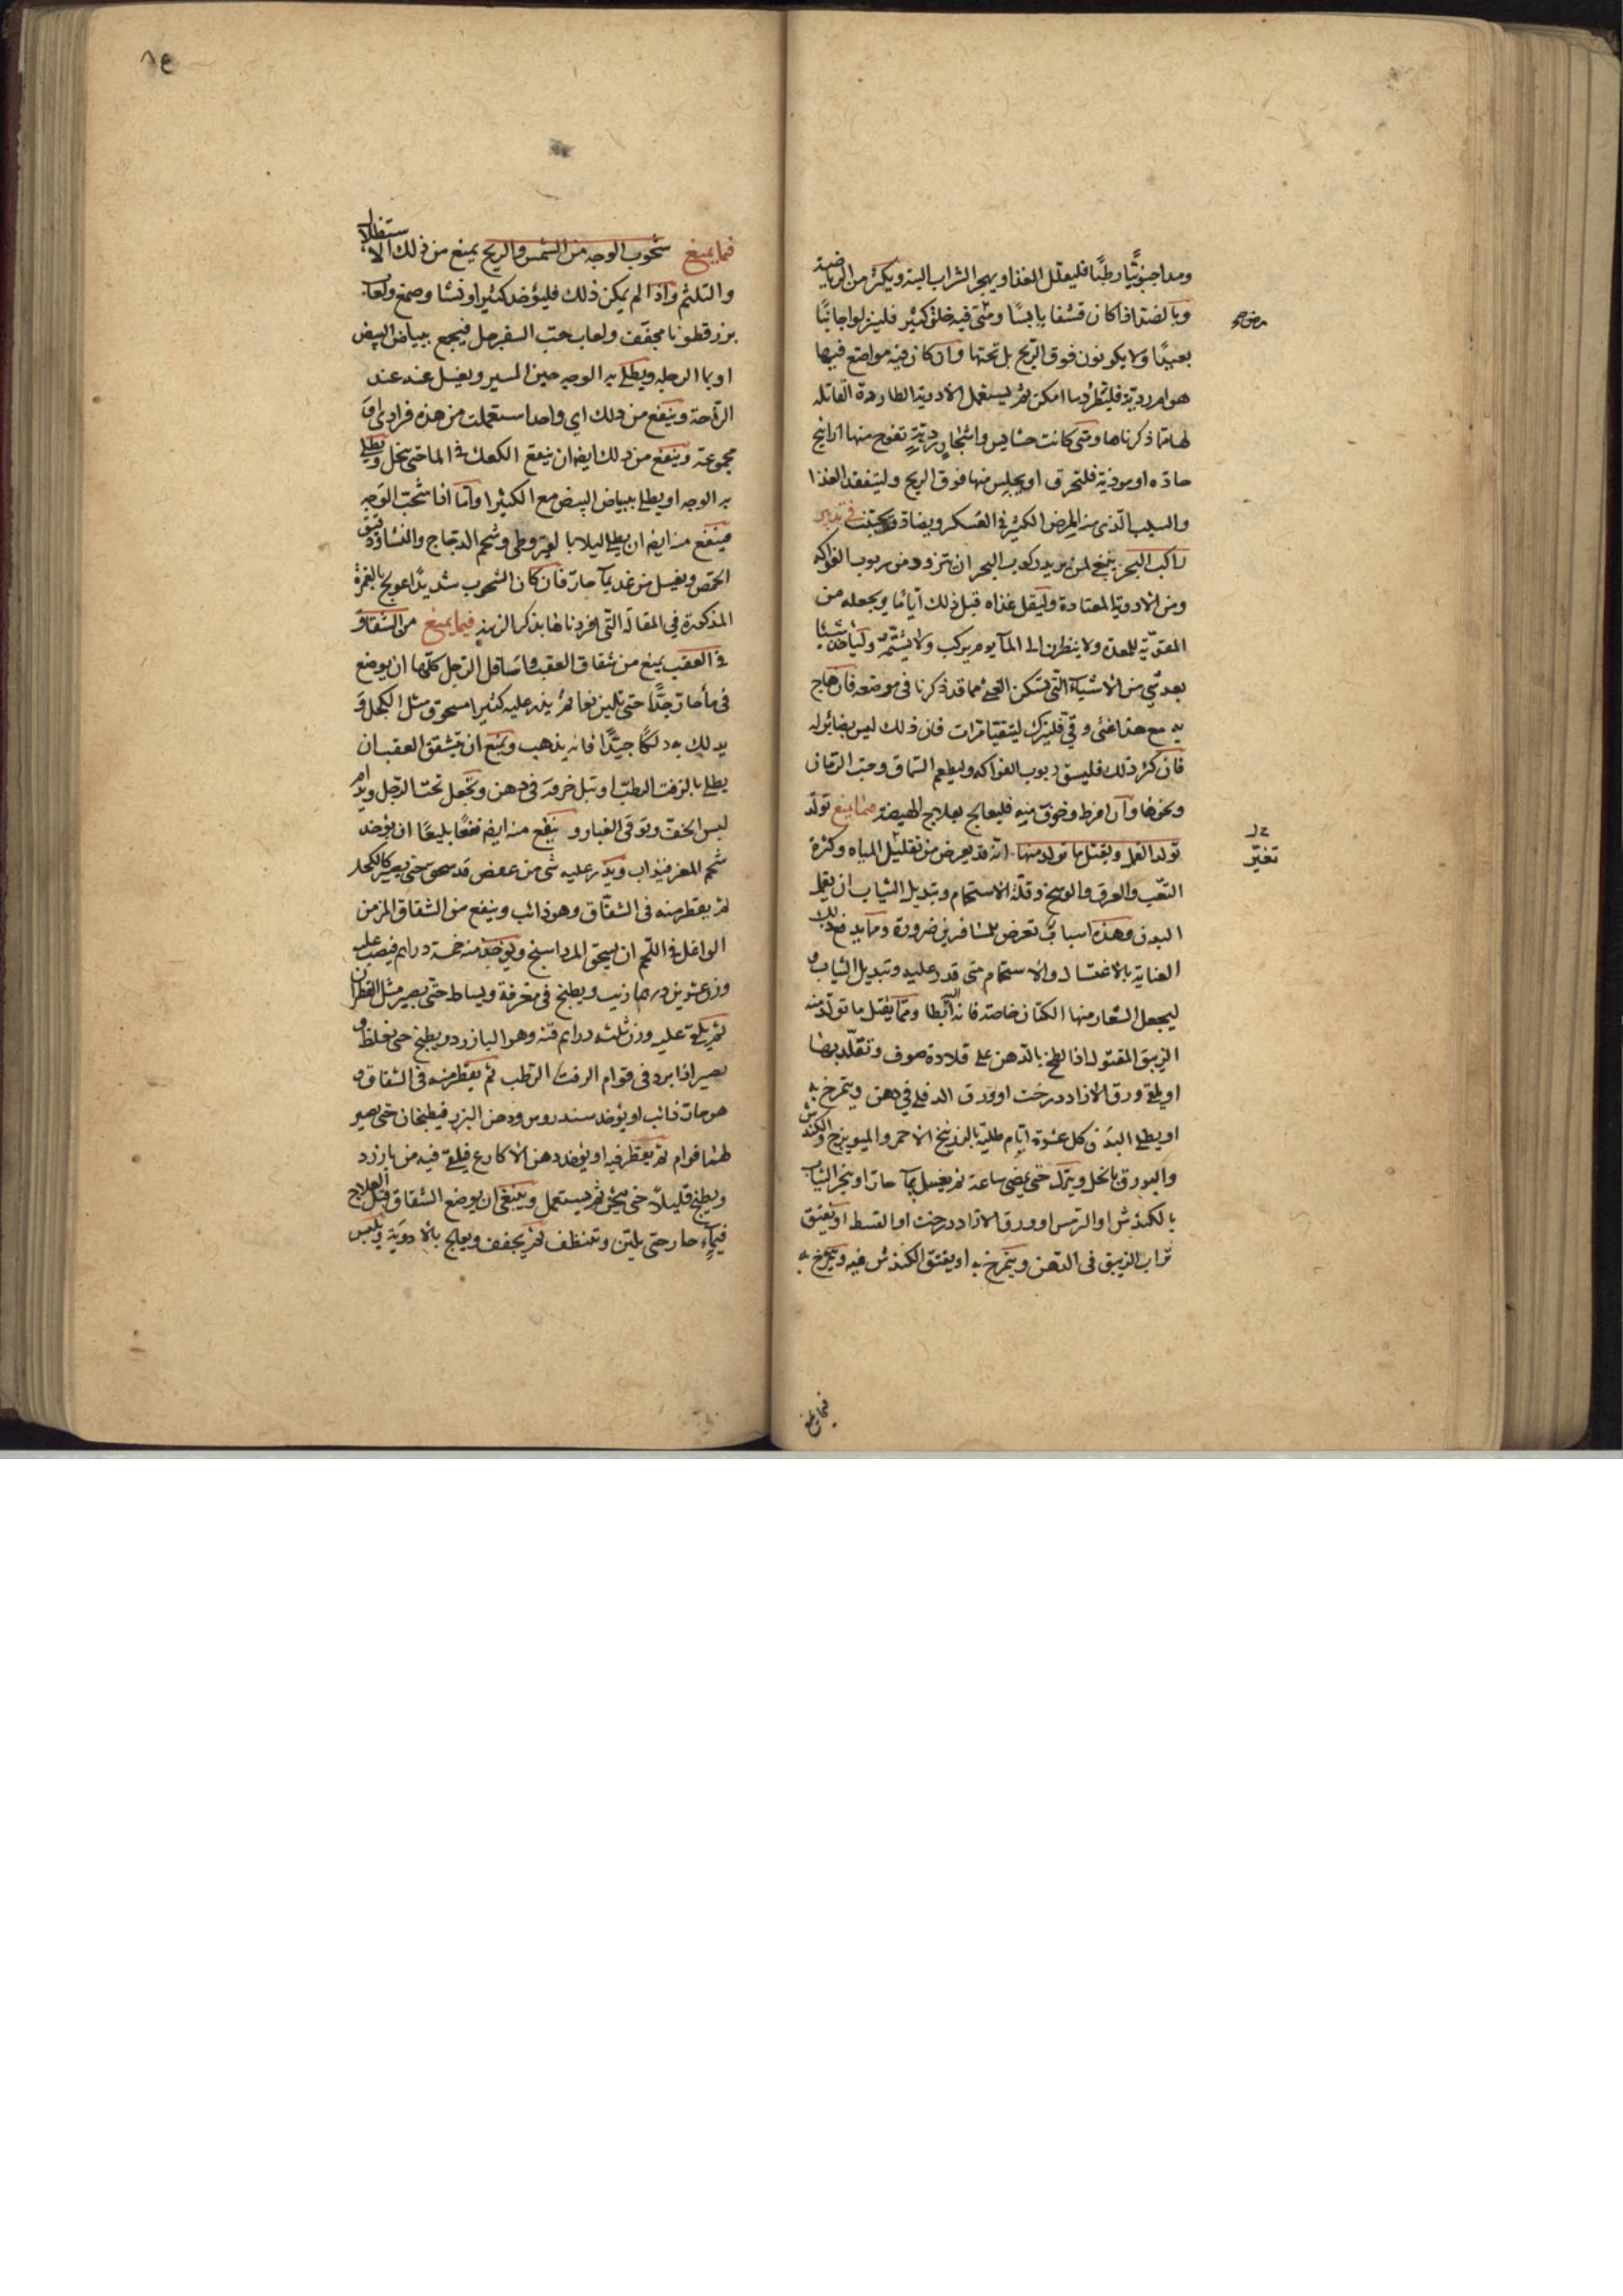 ومداجنوبيًّا رطبًا فليقلل الغذا ويهجر الشراب البتة ويكثر من الرياضة
وبالضد اذا كان قشفا يابسًا ومتى فيه خلق كثير فلينزلوا جانبًا
بعيدًا ولا يكونون فوق الريح بل تحتها وان كان فيه مواضع فيها
هوام ردية فليطرد ما امكن ثم يستعمل الادوية الطاردة القاتله
لها مما ذكرناها ومتى كانت حشايش واشجار ردية تفوح منها اراييح
حادّه او موذية فلتحرق او يجلس منها فوق الريح وليتفقد الغذا
والسبب الذى منه المرض الكثير فى العسكر ويضاد ويجتنب فى تدبير
راكب البحر ينبغى لمن يريد ركوب البحر ان يتزود من ربوب الفواكه
ومن الادوية المعتادة وليقل غذاه قبل ذلك اياما ويجعله من
المقوّية للمعدة ولا ينظرن الى المآ يوم يركب ولا يشتمّه ولياخذ شيئا
بعد شى من الاشيآء التى تسكن القى مما قد ذكرنا فى موضعه فان هاج
به مع هذا غثى وقى فليترك ليتقيا مرات فان ذلك ليس بضائر له
فان كثر ذلك فليسق ربوب الفواكه وليطعم السماق وحب الرمان
ونحوها وان افرط وخوف منه فليعالج بعلاج الهيضة فيما يمنع تولد
تولد القمل ويقتل ما تولد منها انه قد يعرض من تقليل المياه وكثرة
التعب والعرق والوسخ وقلة الاستحمام وتبديل الثياب ان يقمل
البدن وهذه اسباب تعرض للمسافرين ضرورة ومما يدفع ذلك
العناية بالاغتسال والاستحمام متى قدر عليه وتبديل الثياب و
ليجعل الشعار منها الكتان خاصة فانه ابطا ومما يقتل ما تولد منه
الزيبق المقتول اذا لطخ بالدهن على قلادة صوف وتقلد بها
او يلقى ورق الازاددرخت او ورق الدفلى فى دهن ويتمرخ به
او يطلى البدن كل عشرة ايام طلية بالزرنيخ الاحمر والميويزج والكندش
والبورق بالخل ويترك حتى يمضى ساعة ثم يغسل بمآ حار او يبخر الثياب
بالكندش او الترمس او ورق الازاددرخت او القسط او يفتق
تراب الزيبق فى الدهن ويتمرخ به او يفتق الكندش فيه ويتمرخ به
تغيّر
فيما يمنع
٨٤
فيما يمنع شحوب الوجه من الشمس والريح يمنع من ذلك الاستظلال
والتلثم واذا لم يمكن ذلك فليؤخذ كثيرا ونشا وصمغ ولعاب
بزرقطونا مجفف ولعاب حب السفرجل فيجمع ببياض البيض
او بما الرجله ويطلى به الوجه حين المسير ويغسل عنه عند
الراحة وينفع من ذلك اى واحد استعملت من هذه فرادى او
مجموعة وينفع من ذلك ايضا ان ينقع الكعك فى الما حتى ينحل ويطلى
به الوجه او يطلى ببياض البيض مع الكثيرا واما اذا شحب الوجه
فينفع منه ايضا ان يطلى ليلا بالقيروطى وشحم الدجاج والنشا ودقيق
الحمص ويغسل من غد بمآ حار فان كان الشحوب شديدًا عولج بالغمرة
المذكورة فى المقالة التى افردناها بذكر الزينه فيما يمنع من الشقاق
فى العقب يمنع من شقاق العقب واسافل الرجل كلها ان يوضع
فى مآ حار جدًّا حتى تلين نعما ثم يذر عليه كثيرا مسحوق مثل الكحل و
يدلك به دلكًا جيدًا فانه يذهب ويمنع ان تتشقق العقب ان
يطلى بالزفت الرطب او تبل خرقه فى دهن وتجعل تحت الرجل ويدام
لبس الخف وتوقى الغبار و ينفع منه ايضا نفعًا بليغًا ان يؤخذ
شحم المعز فيذاب ويذر عليه شى من عفص قد سحق حتى يصير كالكحل
ثم يقطر منه فى الشقاق وهو ذائب وينفع من الشقاق المزمن
الواغل فى اللحم ان يسحق المرداسنج ويؤخذ منه خمسة دراهم فيصب عليه
وزن عشرين درهما زيت ويطبخ فى مغرفة ويساط حتى يصير مثل القطران
ثم يلقى عليه وزن ثلثه دراهم قنه وهو البازرد ويطبخ حتى يغلظ و
يصير اذا برد فى قوام الزفت الرطب ثم يقطر منه فى الشقاق و
هو حار ذائب او يؤخذ سندروس ودهن البزر فيطبخان حتى يصير
لهما قوام ثم يقطر فيه او يؤخذ دهن الاكارع فيلقى فيه من بازرد
ويطبخ قليلا حتى يثخن ثم يستعمل وينبغى ان يوضع الشقاق قبل العلاج
فى مآء حار حتى يلين وتنظف ثم يجفف ويعالج بالادوية ويلبس